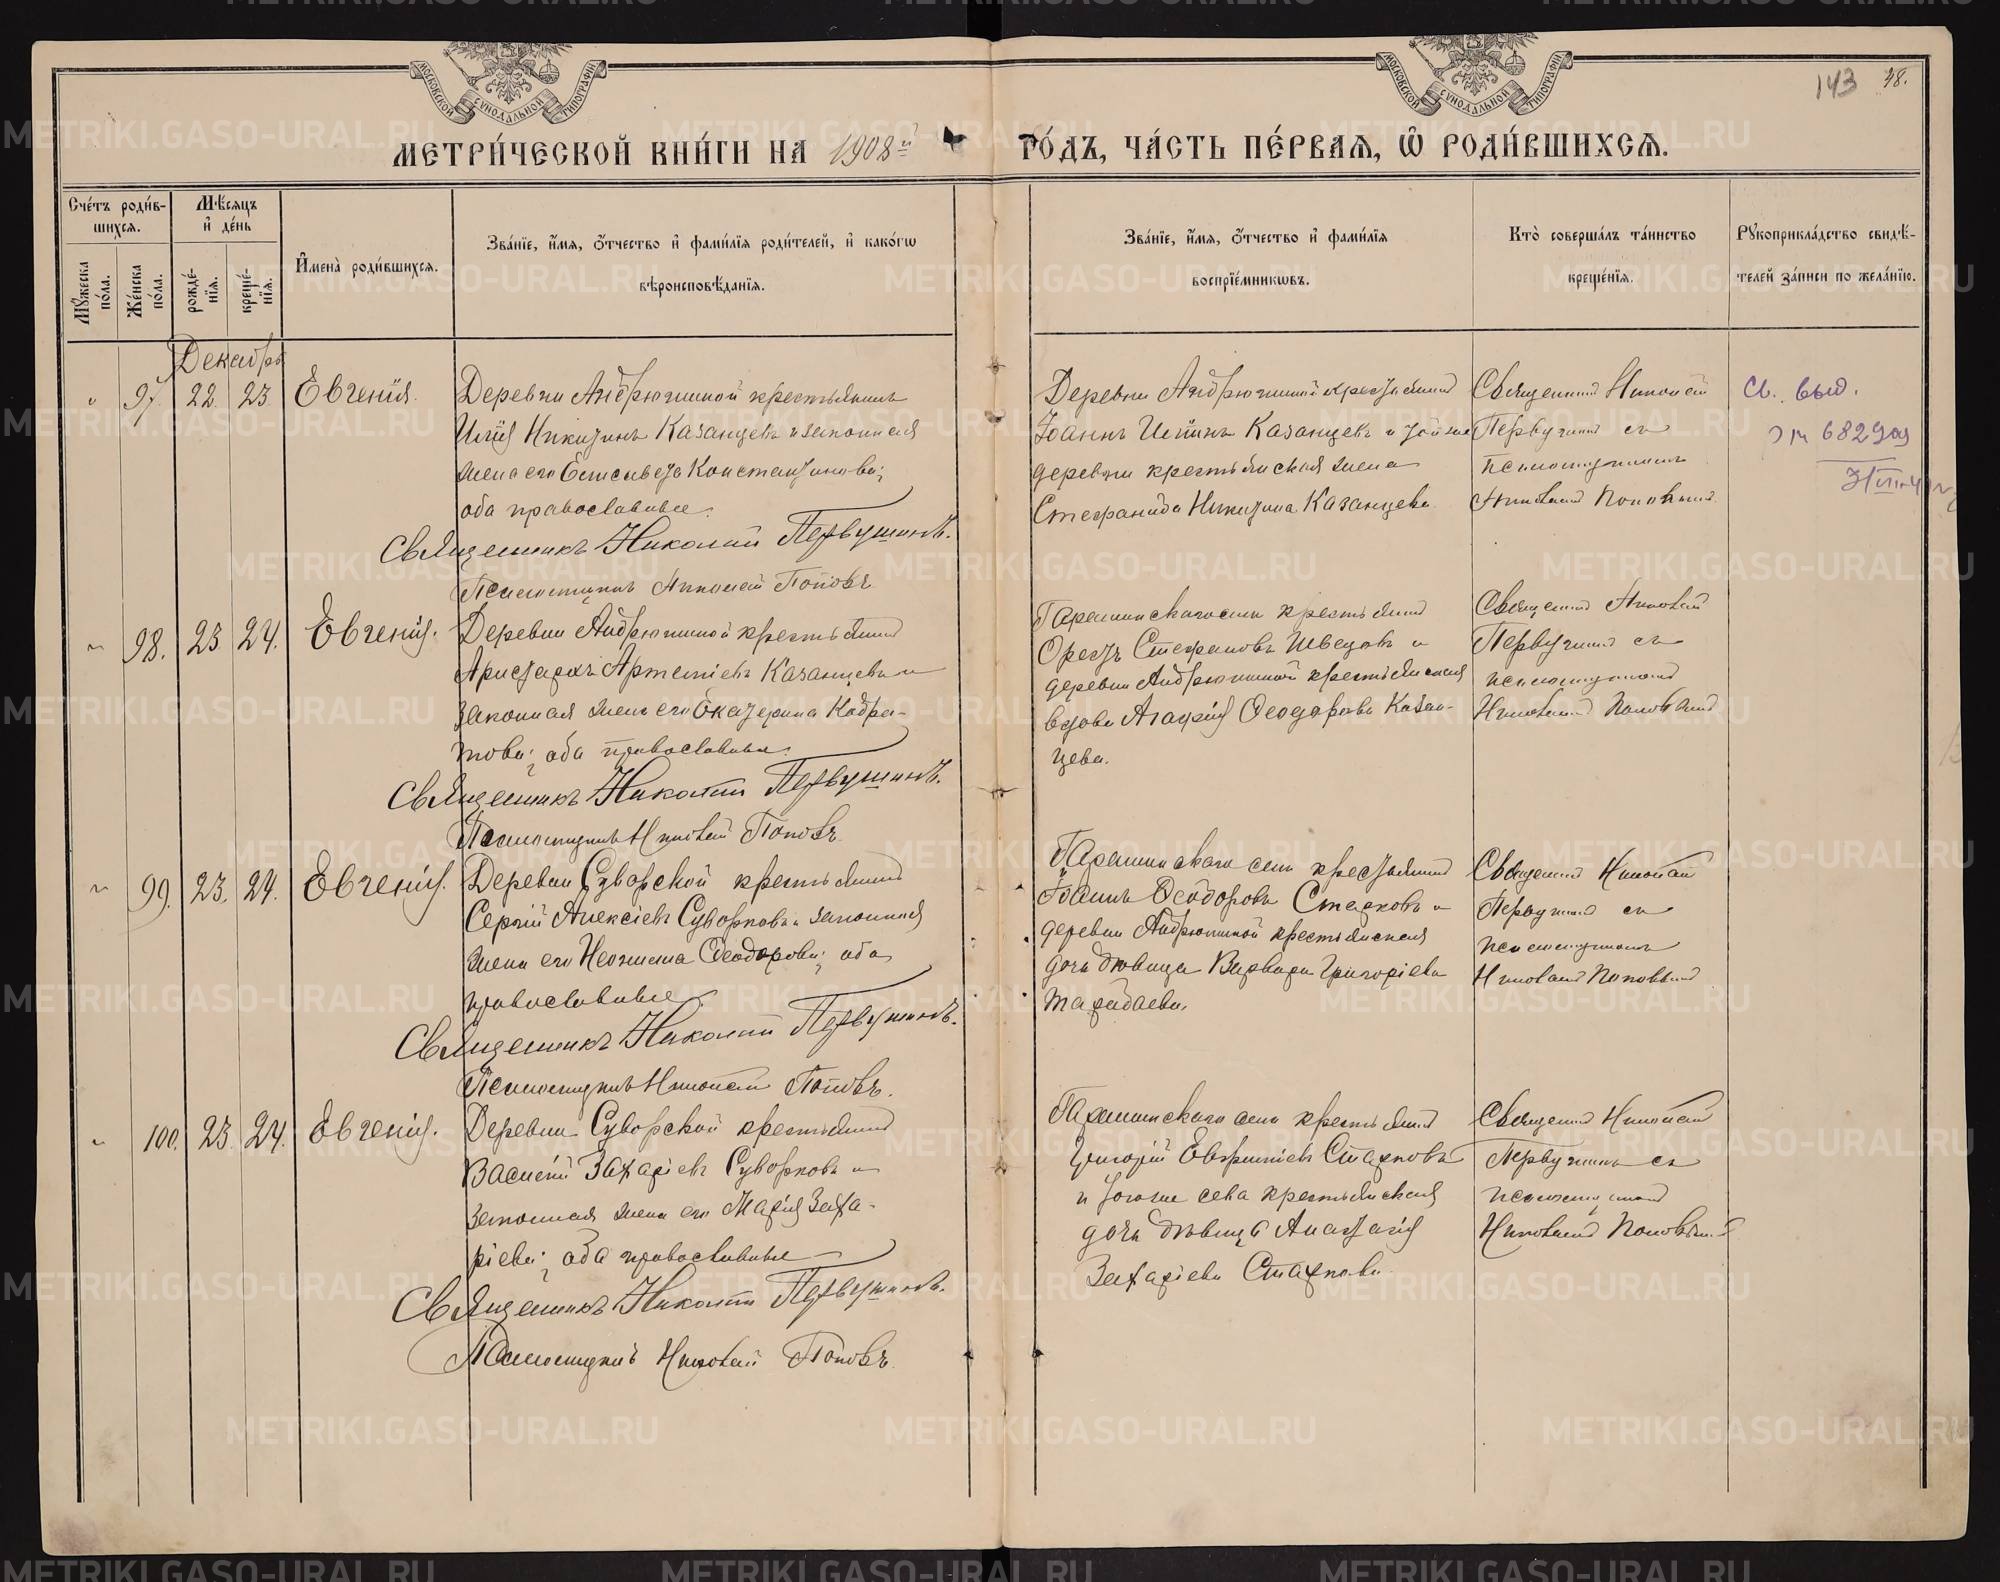 143 38.
МОСКОВСКОЙ СѴНОДАЛЬНОЙ ТИПОГРАФІИ
МОСКОВСКОЙ СѴНОДАЛЬНОЙ ТИПОГРАФІИ
МЕТРИ́ЧЕСКОЙ КНИ́ГИ НА 1908й ГО́ДЪ, ЧА́СТЬ ПЕ́РВАѦ, Ѽ РОДИ́ВШИХСѦ.
Сче́тъ роди́в-
шихсѧ.
Мѣ́сѧцъ
и҆ де́нь
Мꙋ́жеска
по́ла.
Же́нска
по́ла.
рожде́-
нїѧ.
креще́-
нїѧ.
И҆мена̀ роди́вшихсѧ.
Зва́нїе, и҆́мѧ, ѻ҆́тчество и҆ фами́лїѧ роди́телей, и҆ како́гѡ
вѣроисповѣ́данїѧ.
Зва́нїе, и҆́мѧ, ѻ҆́тчество и҆ фами́лїѧ
воспрїе́мникѡвъ.
Кто̀ соверша́лъ та́инство
креще́нїѧ.
Рꙋкоприкла́дство свидѣ́-
телей за́писи по жела́нїю.
Декабрь
97. 22. 23. Евгенія.
Деревни Андрюшиной крестьянинъ
Илія Никитинъ Казанцевъ и законная
жена его Елисавета Константинова;
оба православные.
Священникъ Николай Первушинъ.
Псаломщикъ Николай Поповъ
Деревни Андрюшиной крестьянинъ
Іоаннъ Иліинъ Казанцевъ и той же
деревни крестьянская жена
Стефанида Никитина Казанцева.
Священникъ Николай
Первушинъ съ
псаломщикомъ
Николаемъ Поповымъ.
Св. выд.
682
98. 23. 24. Евгенія.
Деревни Андрюшиной крестьянинъ
Аристархъ Артеміевъ Казанцевъ и
законная жена его Екатерина Кодра-
това; оба православные.
Священникъ Николай Первушинъ.
Псаломщикъ Николай Поповъ.
Гарашкинскаго села крестьянинъ
Орестъ Стефановъ Швецовъ и
деревни Андрюшиной крестьянская
вдова Агаѳія Ѳеодорова Казан-
цева.
Священникъ Николай
Первушинъ съ
псаломщикомъ
Николаемъ Поповымъ
99. 23. 24. Евгенія.
Деревни Суворской крестьянинъ
Сергій Алексіевъ Суворковъ и законная
жена его Неонилла Ѳеодорова; оба
православные.
Священникъ Николай Первушинъ.
Псаломщикъ Николай Поповъ.
Гарашкинскаго села крестьянинъ
Іоаннъ Ѳеодоровъ Старковъ и
деревни Андрюшиной крестьянская
дочь дѣвица Варвара Григоріева
Священникъ Николай
Первушинъ съ
псаломщикомъ
Николаемъ Поповымъ
100. 23. 24. Евгенія.
Деревни Суворской крестьянинъ
Василій Захаріевъ Суворковъ и
законная жена его Марія Заха-
ріева; оба православные
Священникъ Николай Первушинъ.
Псаломщикъ Николай Поповъ.
Гарашкинскаго села крестьянинъ
Григорій Евфиміевъ Старковъ
и того же села крестьянская
дочь дѣвица Анастасія
Захаріева Старкова.
Священникъ Николай
Первушинъ съ
псаломщикомъ
Николаемъ Поповымъ
METRIKI.GASO-URAL.RU